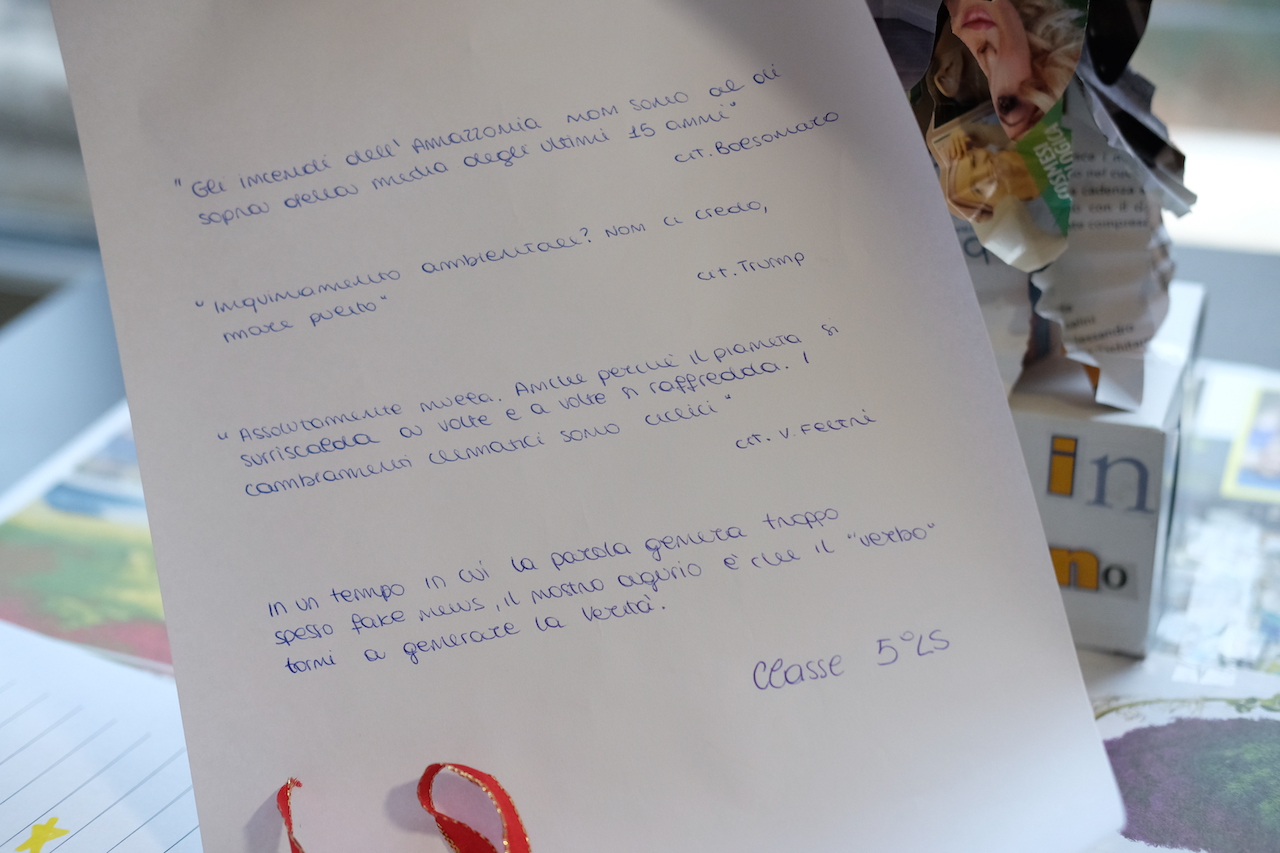 "Gli incendi dell'Amazzonia non sono al di
sopra della media degli ultimi 15 anni"
cit. Bolsonaro
"Inquinamento ambientale? Non ci credo,
mare pulito"
cit. Trump
"Assolutamente nulla. Anche perché il pianeta si
surriscalda a volte e a volte si raffredda. I
cambiamenti climatici sono ciclici"
cit. V. Feltri
In un tempo in cui la parola genera troppo
spesso fake news, il nostro augurio è che il "verbo"
torni a generare la verità.
Classe 5°LS
in in
no